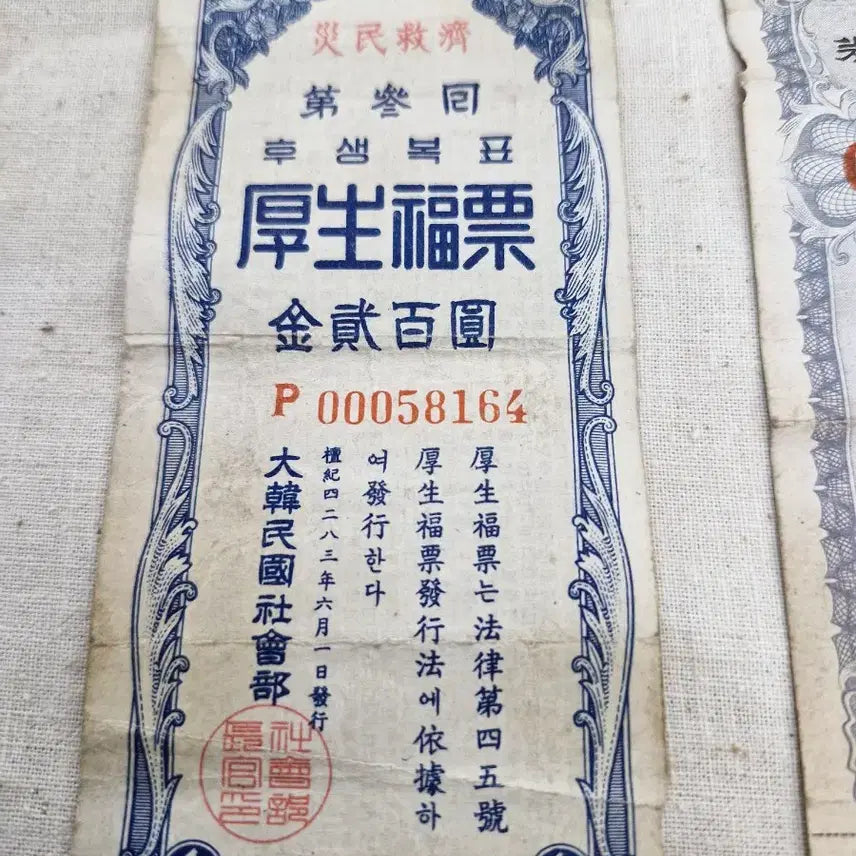 災民救濟
第叄回
후생복표
厚生福票
金貳百圓
P 00058164
厚生福票는法律第四五號
厚生福票發行法에依據하
여發行한다
檀紀四二八三年六月一日發行
大韓民國社會部
社會部
長官印
券